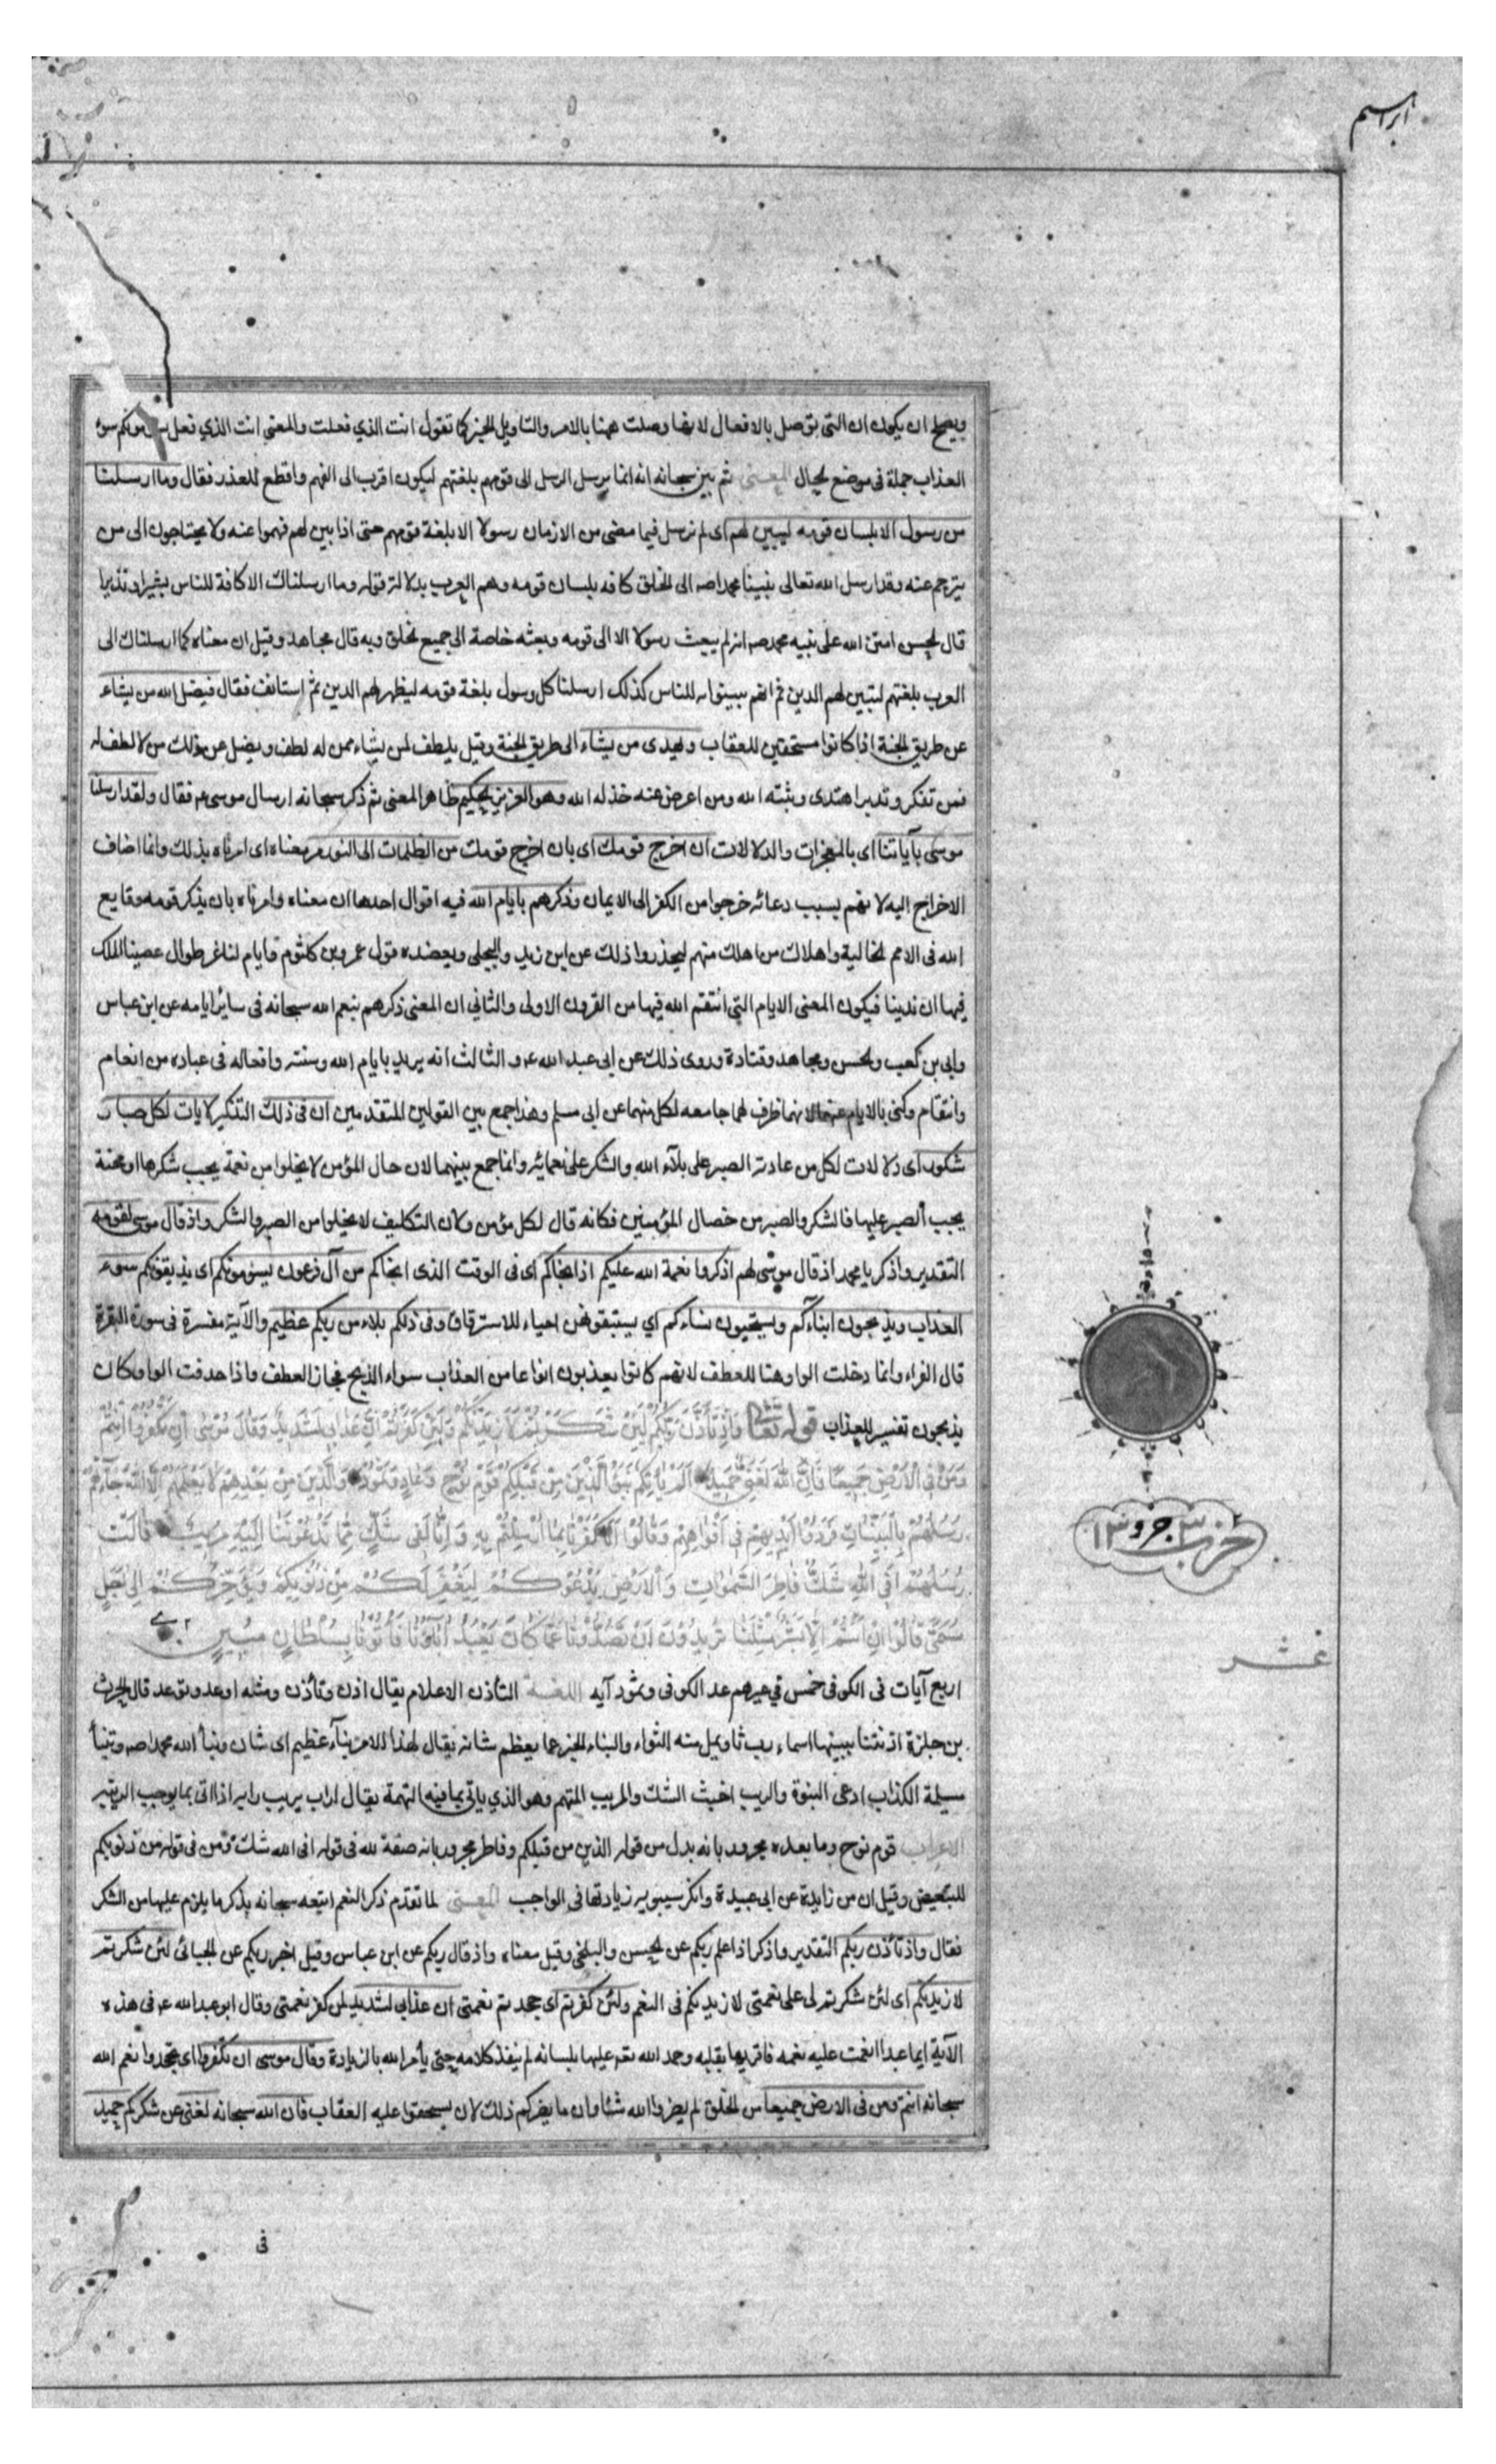 ابراهيم
ويصح ان يكون ان التى توصل بالافعال لانها وصلت ههنا بالامر والتاويل الخبر كما تقول انت الذي فعلت والمعنى انت الذي فعل يسومونكم سوء
العذاب جملة فى موضع الحال المعنى ثم بين سبحانه انه انما يرسل الرسل الى قومهم بلغتهم ليكون اقرب الى الفهم واقطع للعذر فقال وما ارسلنا
من رسول الا بلسان قومه ليبين لهم اى لم نرسل فيما مضى من الازمان رسولا الا بلغة قومهم حتى اذا بين لهم فهموا عنه ولا يحتاجون الى من
يترجم عنه وقد ارسل الله تعالى نبينا محمدا صه الى الخلق كافه بلسان قومه وهم العرب بدلالة قوله وما ارسلناك الا كافة للناس بشيرا ونذيرا
قال الحسن امتن الله على نبيه محمد صه انه لم يبعث رسولا الا الى قومه وبعثه خاصة الى جميع الخلق وبه قال مجاهد وقيل ان معناه كما ارسلناك الى
العرب بلغتهم لتبين لهم الدين ثم انهم يبينونه للناس كذلك ارسلنا كل رسول بلغة قومه ليظهر لهم الدين ثم استانف فقال فيضل الله من يشاء
عن طريق الجنة اذا كانوا مستحقين للعقاب ويهدى من يشاء الى طريق الجنة وقيل يلطف لمن يشاء ممن له لطف ويضل عن ذلك من لا لطف له
فمن تفكر وتدبر اهتدى وثبته الله ومن اعرض عنه خذله الله وهو العزيز الحكيم ظاهر المعنى ثم ذكر سبحانه ارسال موسى ع فقال ولقد ارسلنا
موسى بآياتنا اى بالمعجزات والدلالات ان اخرج قومك اى بان اخرج قومك من الظلمات الى النور مر معناه اى امرناه بذلك وانما اضاف
الاخراج اليه لانهم بسبب دعائه خرجوا من الكفر الى الايمان وذكرهم بايام الله فيه اقوال احدها ان معناه وامرناه بان يذكر قومه وقايع
الله فى الامم الخالية واهلاك من اهلك منهم ليحذروا ذلك عن ابن زيد والبجلى ويعضده قول عمرو بن كلثوم وايام لنا غر طوال عصينا الملك
فيها ان ندينا فيكون المعنى الايام التى انتقم الله فيها من القرون الاولى والثاني ان المعنى ذكرهم بنعم الله سبحانه فى سائر ايامه عن ابن عباس
وابي بن كعب والحسن ومجاهد وقتادة وروى ذلك عن ابى عبد الله ع و الثالث انه يريد بايام الله وسنته وافعاله فى عباده من انعام
وانتقام وكنى بالايام عنهما لانها ظرف لهما جامعه لكل منهما عن ابى مسلم وهذا جمع بين القولين المتقدمين ان فى ذلك التذكير لايات لكل صبار
شكور اى دلالات لكل من عادته الصبر على بلاء الله والشكر على نعمائه وانما جمع بينهما لان حال المؤمن لا يخلوا من نعمة يجب شكرها او محنة
يجب الصبر عليها فالشكر والصبر من خصال المؤمنين فكانه قال لكل مؤمن ولان التكليف لا يخلوا من الصبر والشكر واذ قال موسى لقومه
التقدير واذكر يا محمد اذ قال موسى لهم اذكروا نعمة الله عليكم اذ انجاكم اى فى الوقت الذى انجاكم من آل فرعون يسومونكم اى يذيقونكم سوء
العذاب ويذبحون ابناءكم ويستحيون نساءكم اي يستبقونهن احياء للاسترقاق وفى ذلكم بلاء من ربكم عظيم والآية مفسرة فى سورة البقرة
قال الفراء وانما دخلت الواو هنا للعطف لانهم كانوا يعذبون انواعا من العذاب سواء الذبح فجاز العطف واذا حذفت الواو كان
يذبحون تفسير للعذاب قوله تعالى وَاِذْ تَاَذَّنَ رَبُّكُمْ لَئِنْ شَكَرْتُمْ لَاَزِيدَنَّكُمْ وَلَئِنْ كَفَرْتُمْ اِنَّ عَذَابِى لَشَدِيدٌ وَقَالَ مُوسَى اِنْ تَكْفُرُوا اَنْتُمْ
وَمَنْ فِى الْاَرْضِ جَمِيعًا فَاِنَّ اللهَ لَغَنِىٌّ حَمِيدٌ اَلَمْ يَأْتِكُمْ نَبَؤُا الَّذِينَ مِنْ قَبْلِكُمْ قَوْمِ نُوحٍ وَعَادٍ وَثَمُودَ وَالَّذِينَ مِنْ بَعْدِهِمْ لَا يَعْلَمُهُمْ اِلَّا اللهُ جَاءَتْهُمْ
رُسُلُهُمْ بِالْبَيِّنَاتِ فَرَدُّوا اَيْدِيَهُمْ فِى اَفْوَاهِهِمْ وَقَالُوا اِنَّا كَفَرْنَا بِمَا اُرْسِلْتُمْ بِهِ وَاِنَّا لَفِى شَكٍّ مِمَّا تَدْعُونَنَا اِلَيْهِ مُرِيبٍ قَالَتْ
رُسُلُهُمْ اَفِى اللهِ شَكٌّ فَاطِرِ السَّمٰوَاتِ وَالْاَرْضِ يَدْعُوكُمْ لِيَغْفِرَ لَكُمْ مِنْ ذُنُوبِكُمْ وَيُؤَخِّرَكُمْ اِلَى اَجَلٍ
مُسَمًّى قَالُوا اِنْ اَنْتُمْ اِلَّا بَشَرٌ مِثْلُنَا تُرِيدُونَ اَنْ تَصُدُّونَا عَمَّا كَانَ يَعْبُدُ اٰبَاؤُنَا فَأْتُونَا بِسُلْطَانٍ مُبِينٍ
اربع آيات فى الكوفى خمس في غيرهم عد الكوفى وثمود آيه اللغة التأذن الاعلام يقال اذن وتأذن ومثله اوعد وتوعد قال الحرث
بن حلزة اذنتنا ببينها اسماء رب ثاو يمل منه الثواء والنباء الخبر عما يعظم شانه يقال لهذا الامر نبآء عظيم اى شان ونبأ الله محمدا صه وتنبأ
مسيلمة الكذاب ادعى النبوة والريب اخبث الشك والمريب المتهم وهو الذي ياتى بما فيه التهمة يقال اراب يريب رابه اذا اتى بما يوجب الريبه
الاعراب قوم نوح وما بعده مجرور بانه بدل من قوله الذين من قبلكم وفاطر مجرور بانه صفة لله فى قوله افى الله شك ومن فى قوله من ذنوبكم
للتبعيض وقيل ان من زايدة عن ابى عبيدة وانكر سيبويه زيادتها فى الواجب المعنى لما تقدم ذكر النعم اتبعه سبحانه بذكر ما يلزم عليها من الشكر
فقال واذ تأذن ربكم التقدير واذكر اذ اعلم ربكم عن الحسن والبلخى وقيل معناه واذ قال ربكم عن ابن عباس وقيل اخبر ربكم عن الجبائى لئن شكرتم
لازيدنكم اى لئن شكرتم لى على نعمتى لازيدنكم فى النعم ولئن كفرتم اى جحدتم نعمتى ان عذابى لشديد لمن كفر نعمتى وقال ابو عبد الله ع فى هذه
الآية ايما عبد انعمت عليه نعمه فاقر بها بقلبه وحمد الله عليها بلسانه لم ينفذ كلامه حتى يأمر الله بالزيادة وقال موسى ان تكفروا اى تجحدوا نعم الله
سبحانه انتم ومن فى الارض جميعا من الخلق لم يضروا الله شئا وان ما يضركم ذلك لان يستحقوا عليه العقاب فان الله سبحانه لغنى عن شكركم حميد
حزب ٣ جزو ١٣
عشر
فى